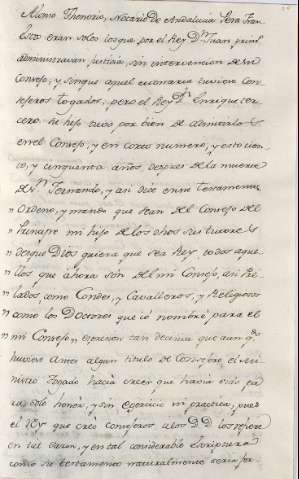 Alonso Thenorio, Notario de Andalucia Pero Fran-
esto eran solos los que por el Rey Dn Juan prim.
administraron justicia, sin intervencion de su
Consejo, y aunque aquel Monarca tuviese con-
sejeros togados, pero el Rey Dn Enrique ter-
cero se hizo tubo por bien de admitirlos
en el Consejo, y en corto numero, y esto cien-
to, y cinquenta años despues de la muerte
de Sn Fernando, y asi dice en su testamento
" Ordeno, y mando que sean del Consejo del
" Principe mi hijo de los dhos sus tutores
" desque Dios quiera que sea Rey todos aque-
" llos que ahora son del mi Consejo, asi Pre-
" lados, como Condes, y Cavalleros, y Religiosos
" como los Doctores que ió nombré para el
" mi Consejo expresion tan decisiva que aun qdo
huviese antes algun titulo de Consejero el Mi-
nistro Togado hacia creer que havia sido pa-
ra solo honor, y sin exercicio ni practica, pues
el Rey que creó consejeros a los DD. los refiere
en tal Data, y en tal considerable Escriptura
como su testamento naturalmente seria for-